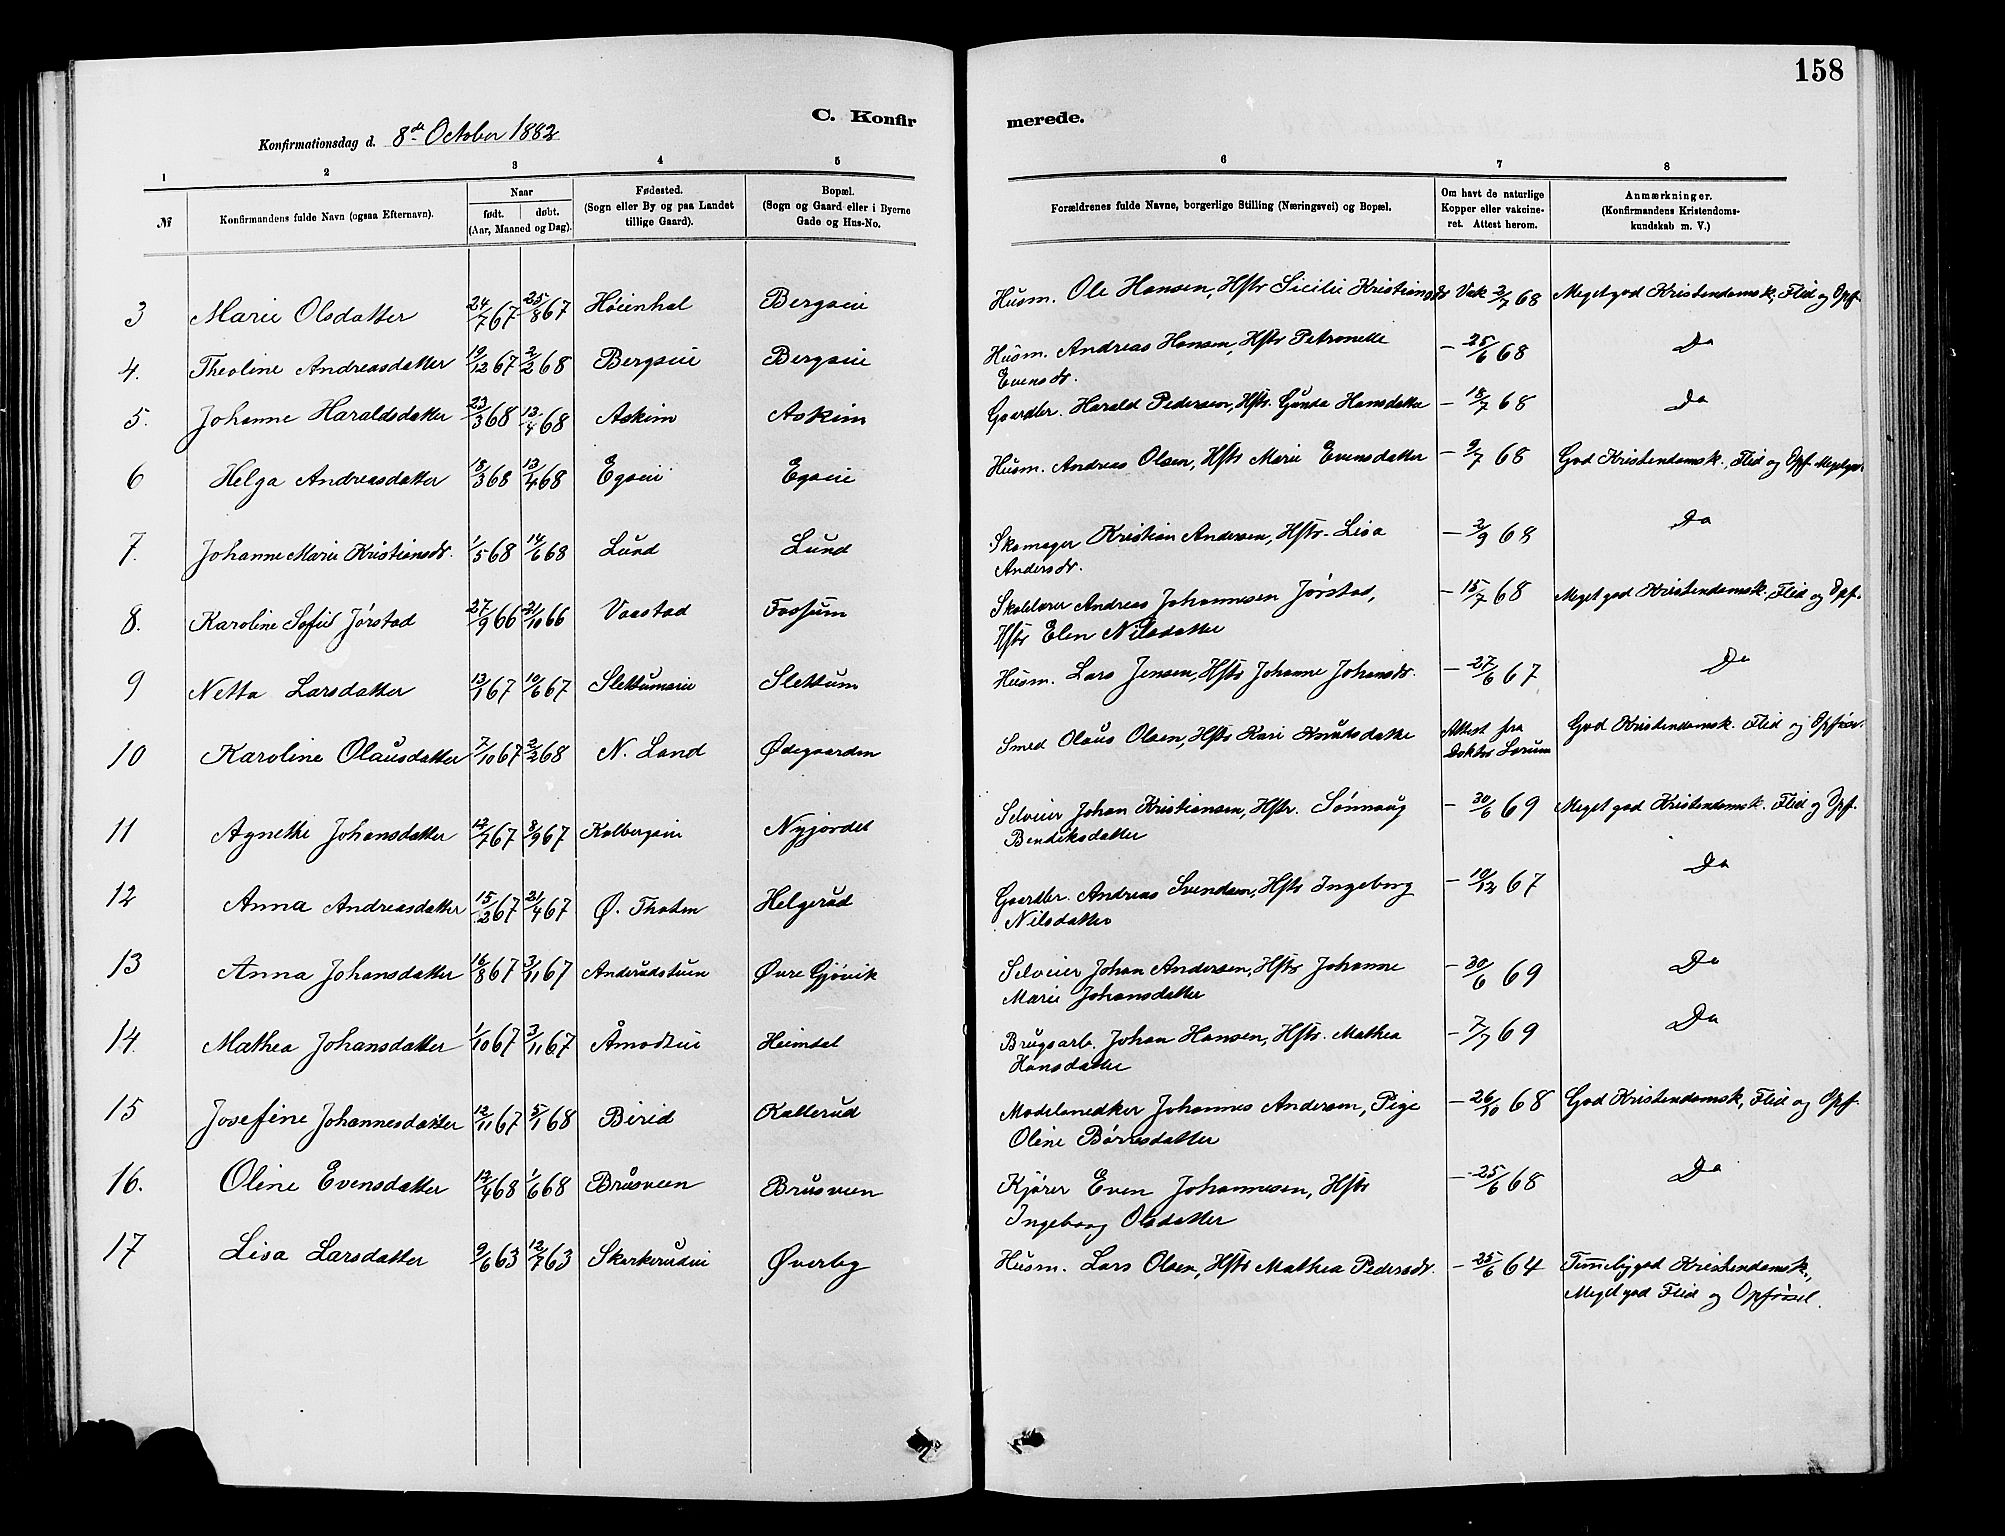 158
C. Konfirmerede.
Konfirmationsdag d. 8de October 1882
1 2 3 4 5 6 7 8
№ Konfirmandens fulde Navn (ogsaa Efternavn). Naar født. døbt. (Aar, Maaned og Dag). Fødested. (Sogn eller By og paa Landet tillige Gaard). Bopæl. (Sogn og Gaard eller i Byerne Gade og Hus-No. Forældrenes fulde Navne, borgerlige Stilling (Næringsvei) og Bopæl. Om havt de naturlige Kopper eller vakcineret. Attest herom. Anmærkninger. (Konfirmandens Kristendomskundskab m. V.)
3 Marie Olsdatter 24/7 67 25/8 67 Høienhal Bergseie Husm. Ole Hansen, Hstr Sicilie Kristiansdr Vak 2/7 68 Meget god Kristendomsk, Flid og Opf.
4. Theoline Andreasdatter 19/12 67 2/2 68 Bergseie Bergseie Husm. Andreas Hansen, Hstr Petronelle
Evensdr. – 25/6 68 Do
5. Johanne Haraldsdatter 23/3 68 13/4 68 Askim Askim Gaardbr. Harald Pedersen, Hstr. Gunda Hansdatter – 18/7 68 Do
6 Helga Andreasdatter 18/3 68 13/4 68 Egseie Egseie Husm. Andreas Olsen, Hstr Marie Evensdatter – 9/7 68 God Kristendomsk. Flid og Opf. Megetgod
7. Johanne Marie Kristiansdr. 1/5 68 14/6 68 Lund Lund Skomager Kristian Andersen, Hstr. Lisa
Andersdr. – 2/9 68 Do
8. Karoline Sofie Jørstad 27/9 66 21/10 66 Vaastad Fossum Skolelærer Andreas Johannesen Jørstad,
Hstr Elen Nilsdatter – 15/7 68 Meget god Kristendomsk. Flid og Opf.
9 Netta Larsdatter 13/1 67 10/6 67 Slettumseie Slettum Husm. Lars Jensen, Hstr Johanne Johansdr. – 27/6 67 Do
10 Karoline Olausdatter 7/10 67 2/2 68 N. Land Ødegaarden Smed Olaus Olsen, Hstr Kari Knutsdatter Attest fra
Doktor Lorum God Kristendomsk. Flid og Opførs.
11 Agnethe Johansdatter 12/7 67 8/9 67 Kolbergseie Nyjordet Selveier Johan Kristiansen, Hstr. Sønnaug
Bendiksdatter – 30/6 69 Meget god Kristendomsk. Flid og Opf.
12 Anna Andreasdatter 15/2 67 21/4 67 Ø. Thoten Helgerud Gaardbr. Andreas Svendsen, Hstr Ingeborg
Nilsdatter – 10/12 67 Do
13 Anna Johansdatter 16/8 67 3/11 67 Anderudstuen Øvre Gjøvik Selveier Johan Andersen, Hstr Johanne
Marie Johansdatter – 30/6 69 Do
14. Mathea Johansdatter 1/10 67 3/11 67 Åmodteie Heimdal Brugsarb. Johan Hansen, Hstr. Mathea
Hansdatter – 7/7 69 Do
15 Josefine Johannesdatter 12/11 67 5/1 68 Birid Kallerud Modelsnedker Johannes Andersen, Pige
Oline Børresdatter – 26/10 68 God Kristendomsk, Flid og Opf.
16. Oline Evensdatter 12/4 68 1/6 68 Brusveen Brusveen Kjører Even Johannesen, Hstr
Ingeborg Olsdatter – 25/6 68 Do
17 Lisa Larsdatter 9/6 63 12/7 63 Skarkerudeie Øverby Husm. Lars Olsen, Hstr Mathea Pedersdr. – 25/6 64 Temmeliggod Kristendomsk.,
Meget god Flid og Opførsel.